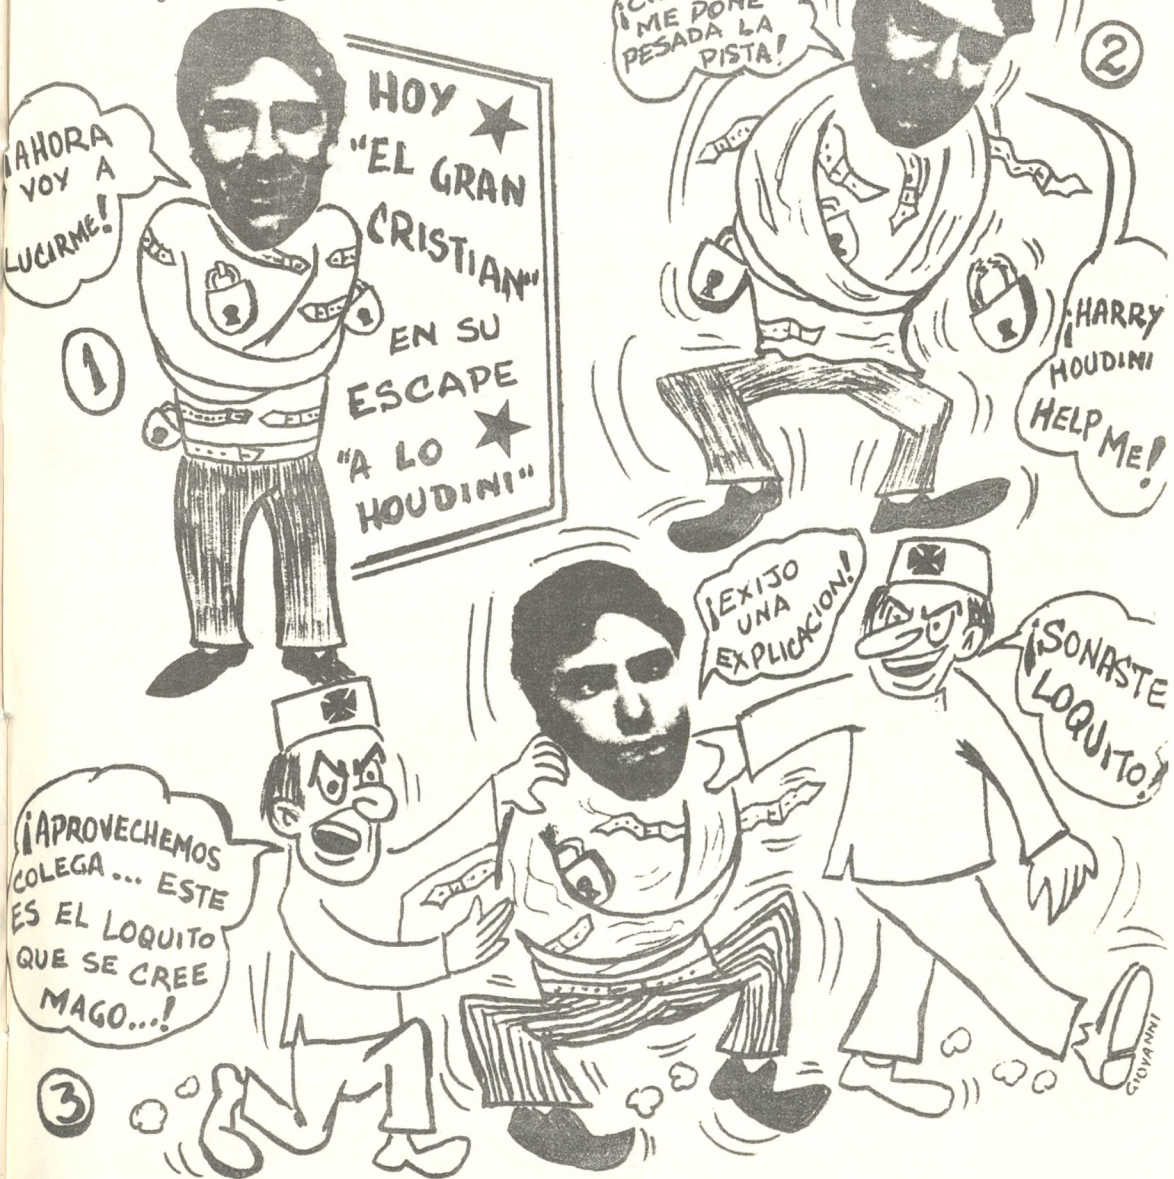 ¡AHORA
VOY A
LUCIRME!
1
HOY
"EL GRAN
CRISTIAN"
EN SU
ESCAPE
"A LO
HOUDINI"
ME PONE
PESADA LA
PISTA!
2
¡HARRY
HOUDINI
HELP ME!
¡EXIJO
UNA
EXPLICACION!
¡SONASTE
LOQUITO!
¡APROVECHEMOS
COLEGA... ESTE
ES EL LOQUITO
QUE SE CREE
MAGO...!
3
GIOVANNI